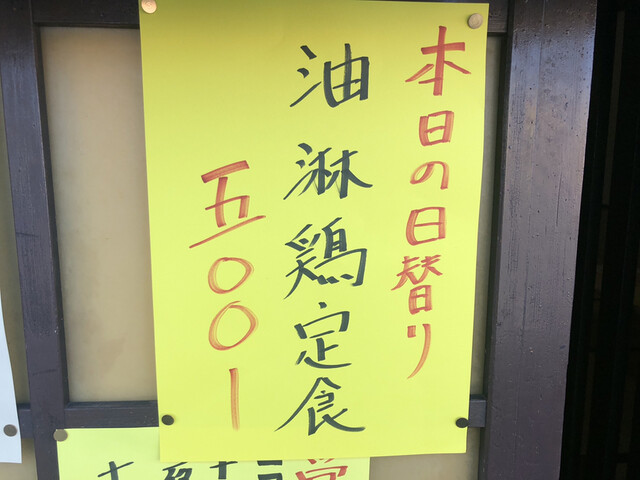 本日の日替り
油淋鶏定食
五〇〇ー